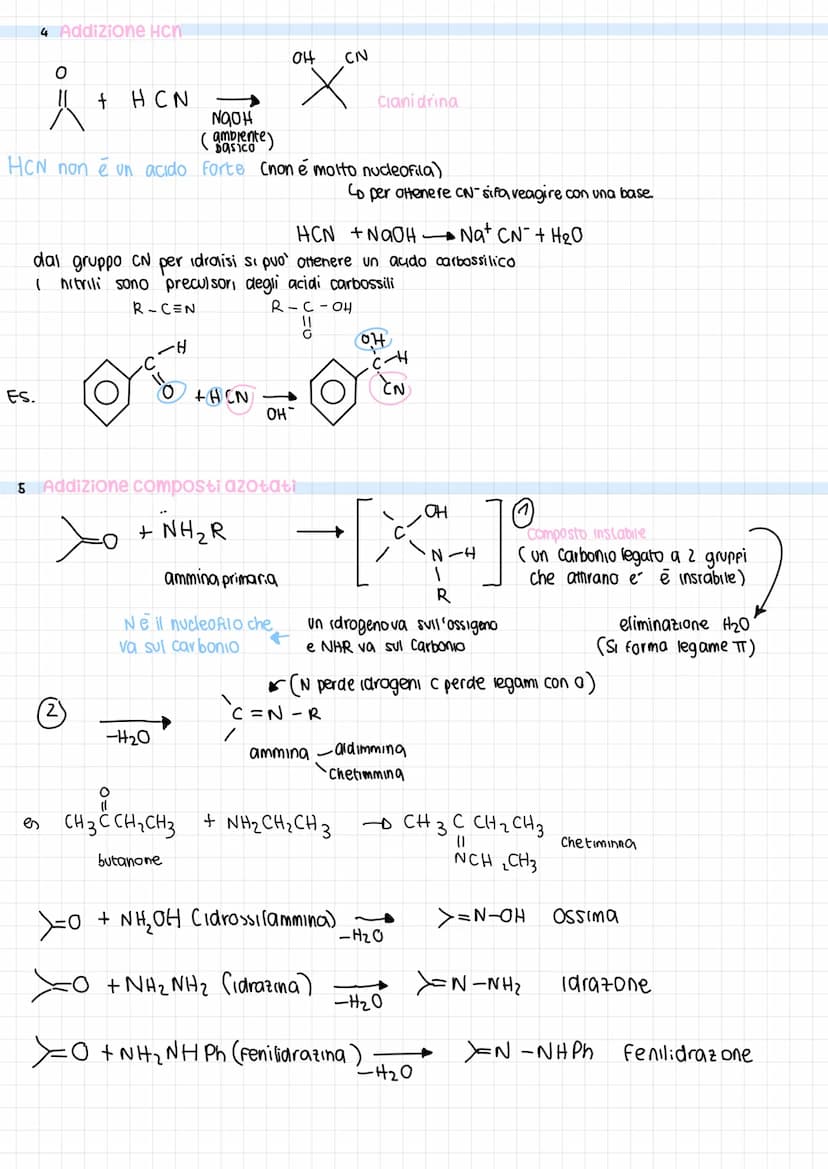 4 Addizione HCN
O
|| + HCN → OH CN
NaOH
(ambiente basico)
Cianidrina
HCN non é un acido forte (non é molto nucleofila)
↳ per ottenere CN⁻ si fa reagire con una base
HCN + NaOH → Na⁺ CN⁻ + H2O
dal gruppo CN per idrolisi si può ottenere un acido carbossilico
I nitrili sono precursori degli acidi carbossili
R-C≡N R-C-OH
||
O
Es. C-H O + HCN → OH C-H CN
OH⁻
5 Addizione composti azotati
=O + N̈H2R → [C OH N-H R] 1
ammina primaria
composto instabile
(un carbonio legato a 2 gruppi
che attirano e⁻ é instabile)
N é il nucleofilo che
va sul carbonio
un idrogeno va sull'ossigeno
e NHR va sul Carbonio
eliminazione H2O
(Si forma legame π)
(N perde idrogeni C perde legami con O)
2 → C=N-R
-H2O
ammina aldimmina
Chetimmina
O
||
es CH3CCH2CH3 + NH2CH2CH3 → CH3CCH2CH3
||
butanone NCH2CH3 Chetiminna
=O + NH2OH (idrossilammina) → =N-OH Ossima
-H2O
=O + NH2NH2 (idrazina) → =N-NH2 Idrazone
-H2O
=O + NH2NHPh (Fenilidrazina) → =N-NHPh Fenilidrazone
-H2O